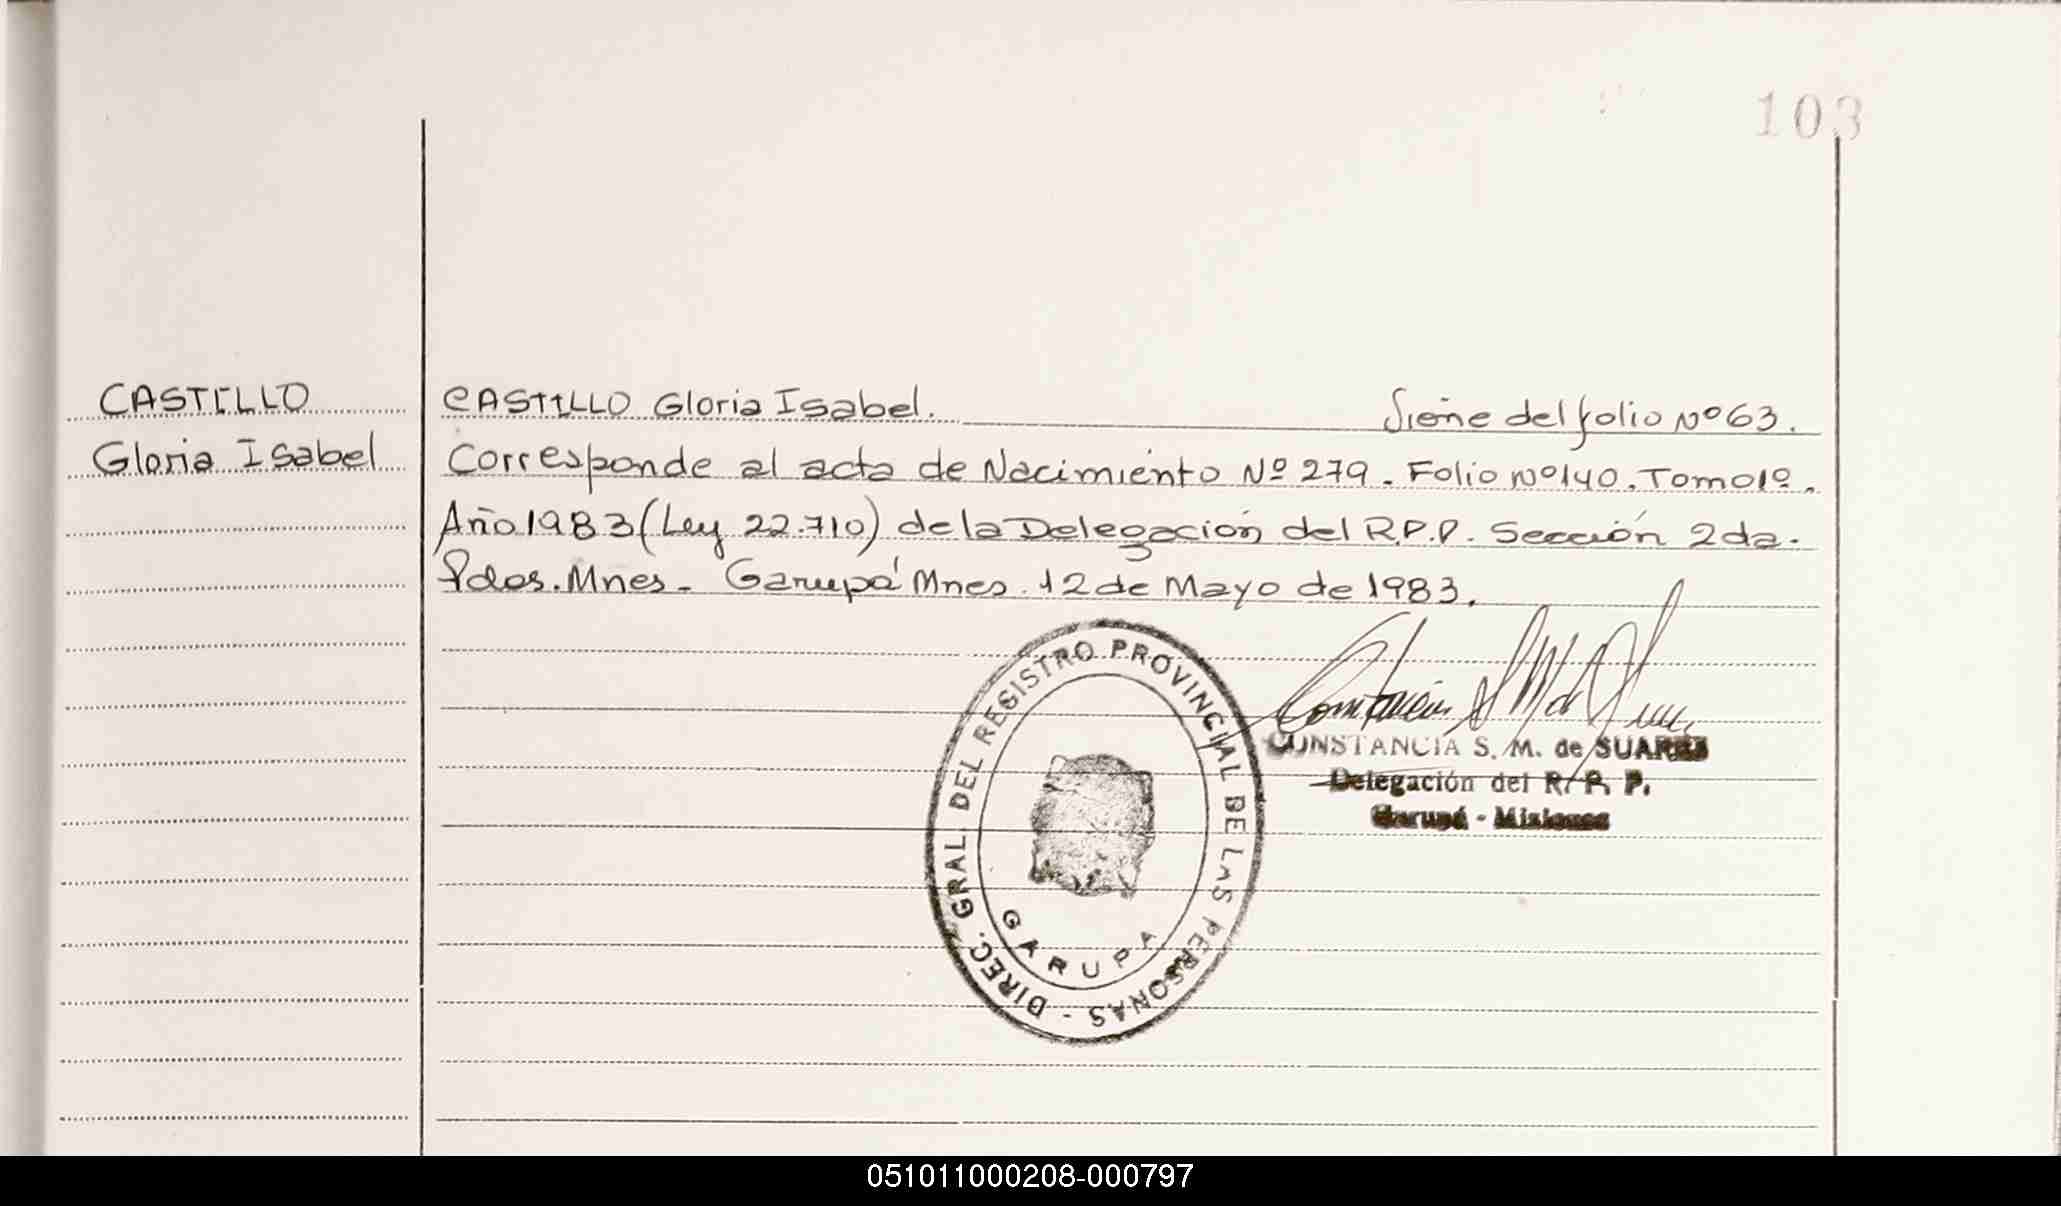 103
CASTILLO
Gloria Isabel
CASTILLO Gloria Isabel. Viene del folio Nº 63.
Corresponde al acta de Nacimiento Nº 279. Folio Nº 140. Tomo 1º.
Año 1983 (Ley 22.710) de la Delegación del R.P.P. Sección 2da.
Pdas. Mnes. Garupá Mnes. 12 de Mayo de 1983.
DIREC. GRAL. DEL REGISTRO PROVINCIAL DE LAS PERSONAS -
GARUPA
CONSTANCIA S. M. de SUAREZ
Delegación del R. P. P.
Garupá - Misiones
051011000208-000797